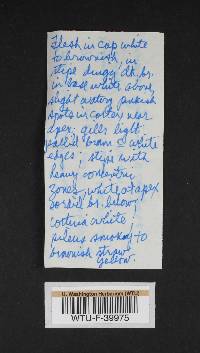 Flesh in cap white
to brownish, in
stipe dingy dk. br.
in base white above,
slight watery pinkish
spots in cortex near
apex; gills light
pallid brown c̄ white
edges; stipe with
heavy concentric
zones, white at apex
sordid br. below;
cortina white
pileus smokey to
brownish straw
yellow.
U. Washington Herbarium (WTU)
WTU-F-39975